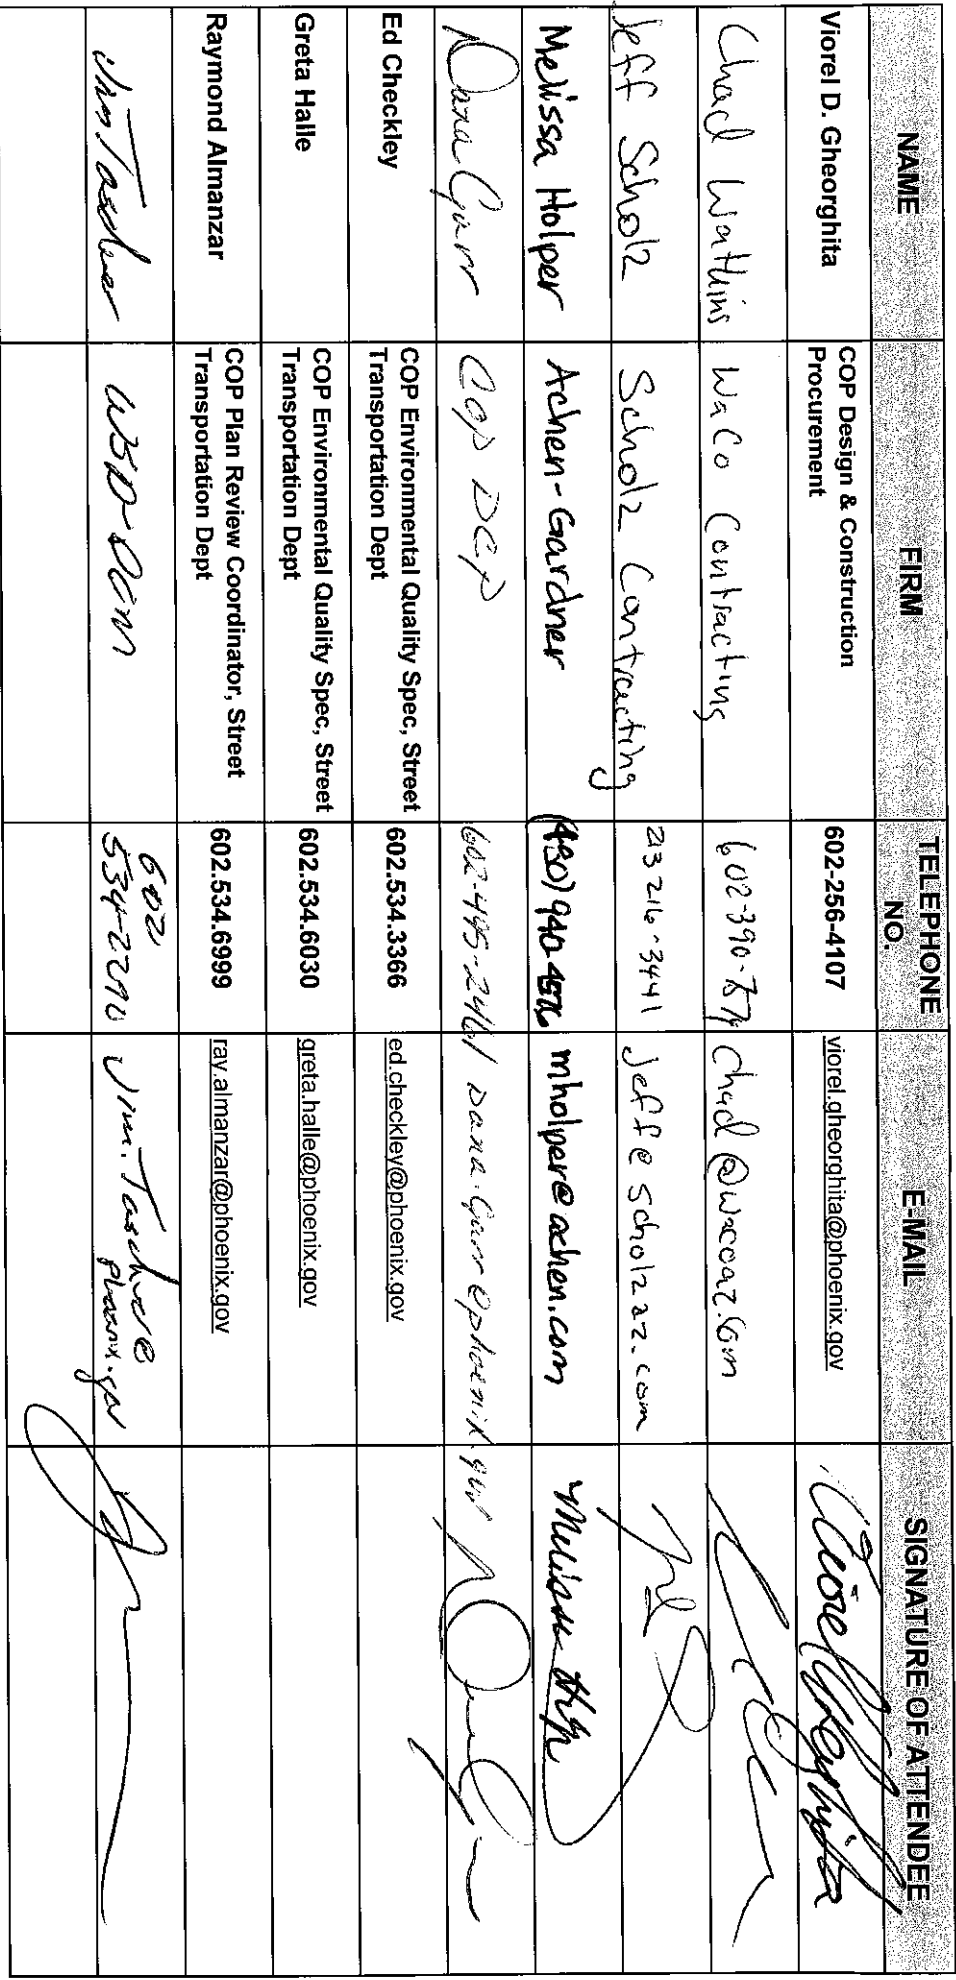 NAME FIRM TELEPHONE NO. E-MAIL SIGNATURE OF ATTENDEE
Viorel D. Gheorghita COP Design & Construction Procurement 602-256-4107 viorel.gheorghita@phoenix.gov
Chad Watkins WaCo Contracting 602-390- chad@wacoaz.com
Jeff Scholz Scholz Contracting 213 216-3441 jeff@scholzaz.com
Melissa Holper Achen-Gardner (480) 940- mholper@achen.com Melissa
Dana COP DCP 602-495-2461
Ed Checkley COP Environmental Quality Spec, Street Transportation Dept 602.534.3366 ed.checkley@phoenix.gov
Greta Halle COP Environmental Quality Spec, Street Transportation Dept 602.534.6030 greta.halle@phoenix.gov
Raymond Almanzar COP Plan Review Coordinator, Street Transportation Dept 602.534.6999 ray.almanzar@phoenix.gov
602